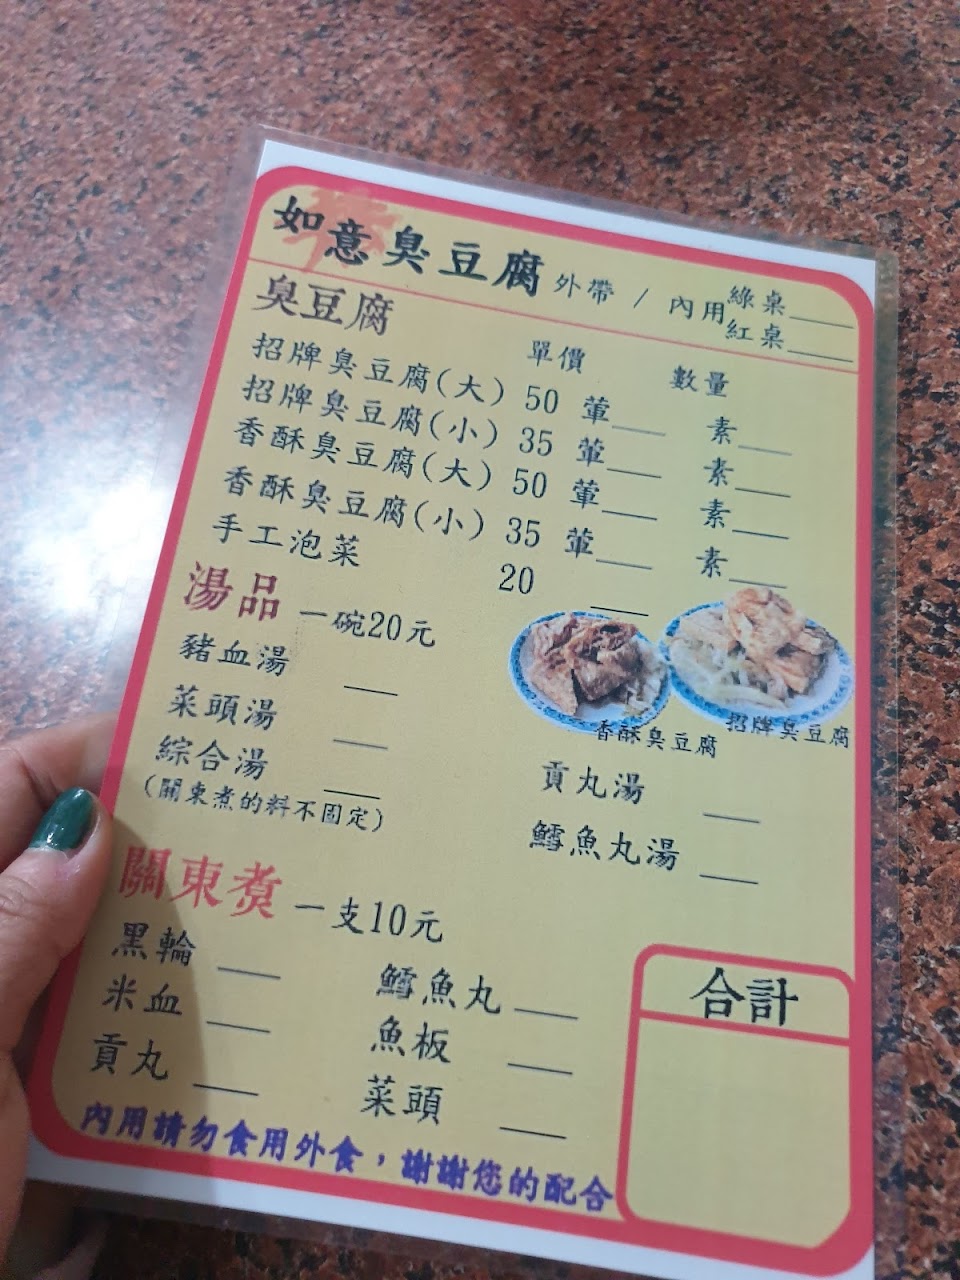 如意臭豆腐 外帶 / 內用 綠桌___ 紅桌___
臭豆腐 單價 數量
招牌臭豆腐(大) 50 葷___ 素___
招牌臭豆腐(小) 35 葷___ 素___
香酥臭豆腐(大) 50 葷___ 素___
香酥臭豆腐(小) 35 葷___ 素___
手工泡菜 20 ___
湯品 一碗20元
香酥臭豆腐 招牌臭豆腐
豬血湯 ___
菜頭湯 ___ 貢丸湯 ___
綜合湯 ___ 鱈魚丸湯 ___
(關東煮的料不固定)
關東煮 一支10元
黑輪 ___ 鱈魚丸 ___
米血 ___ 魚板 ___
貢丸 ___ 菜頭 ___
合計
內用請勿食用外食，謝謝您的配合